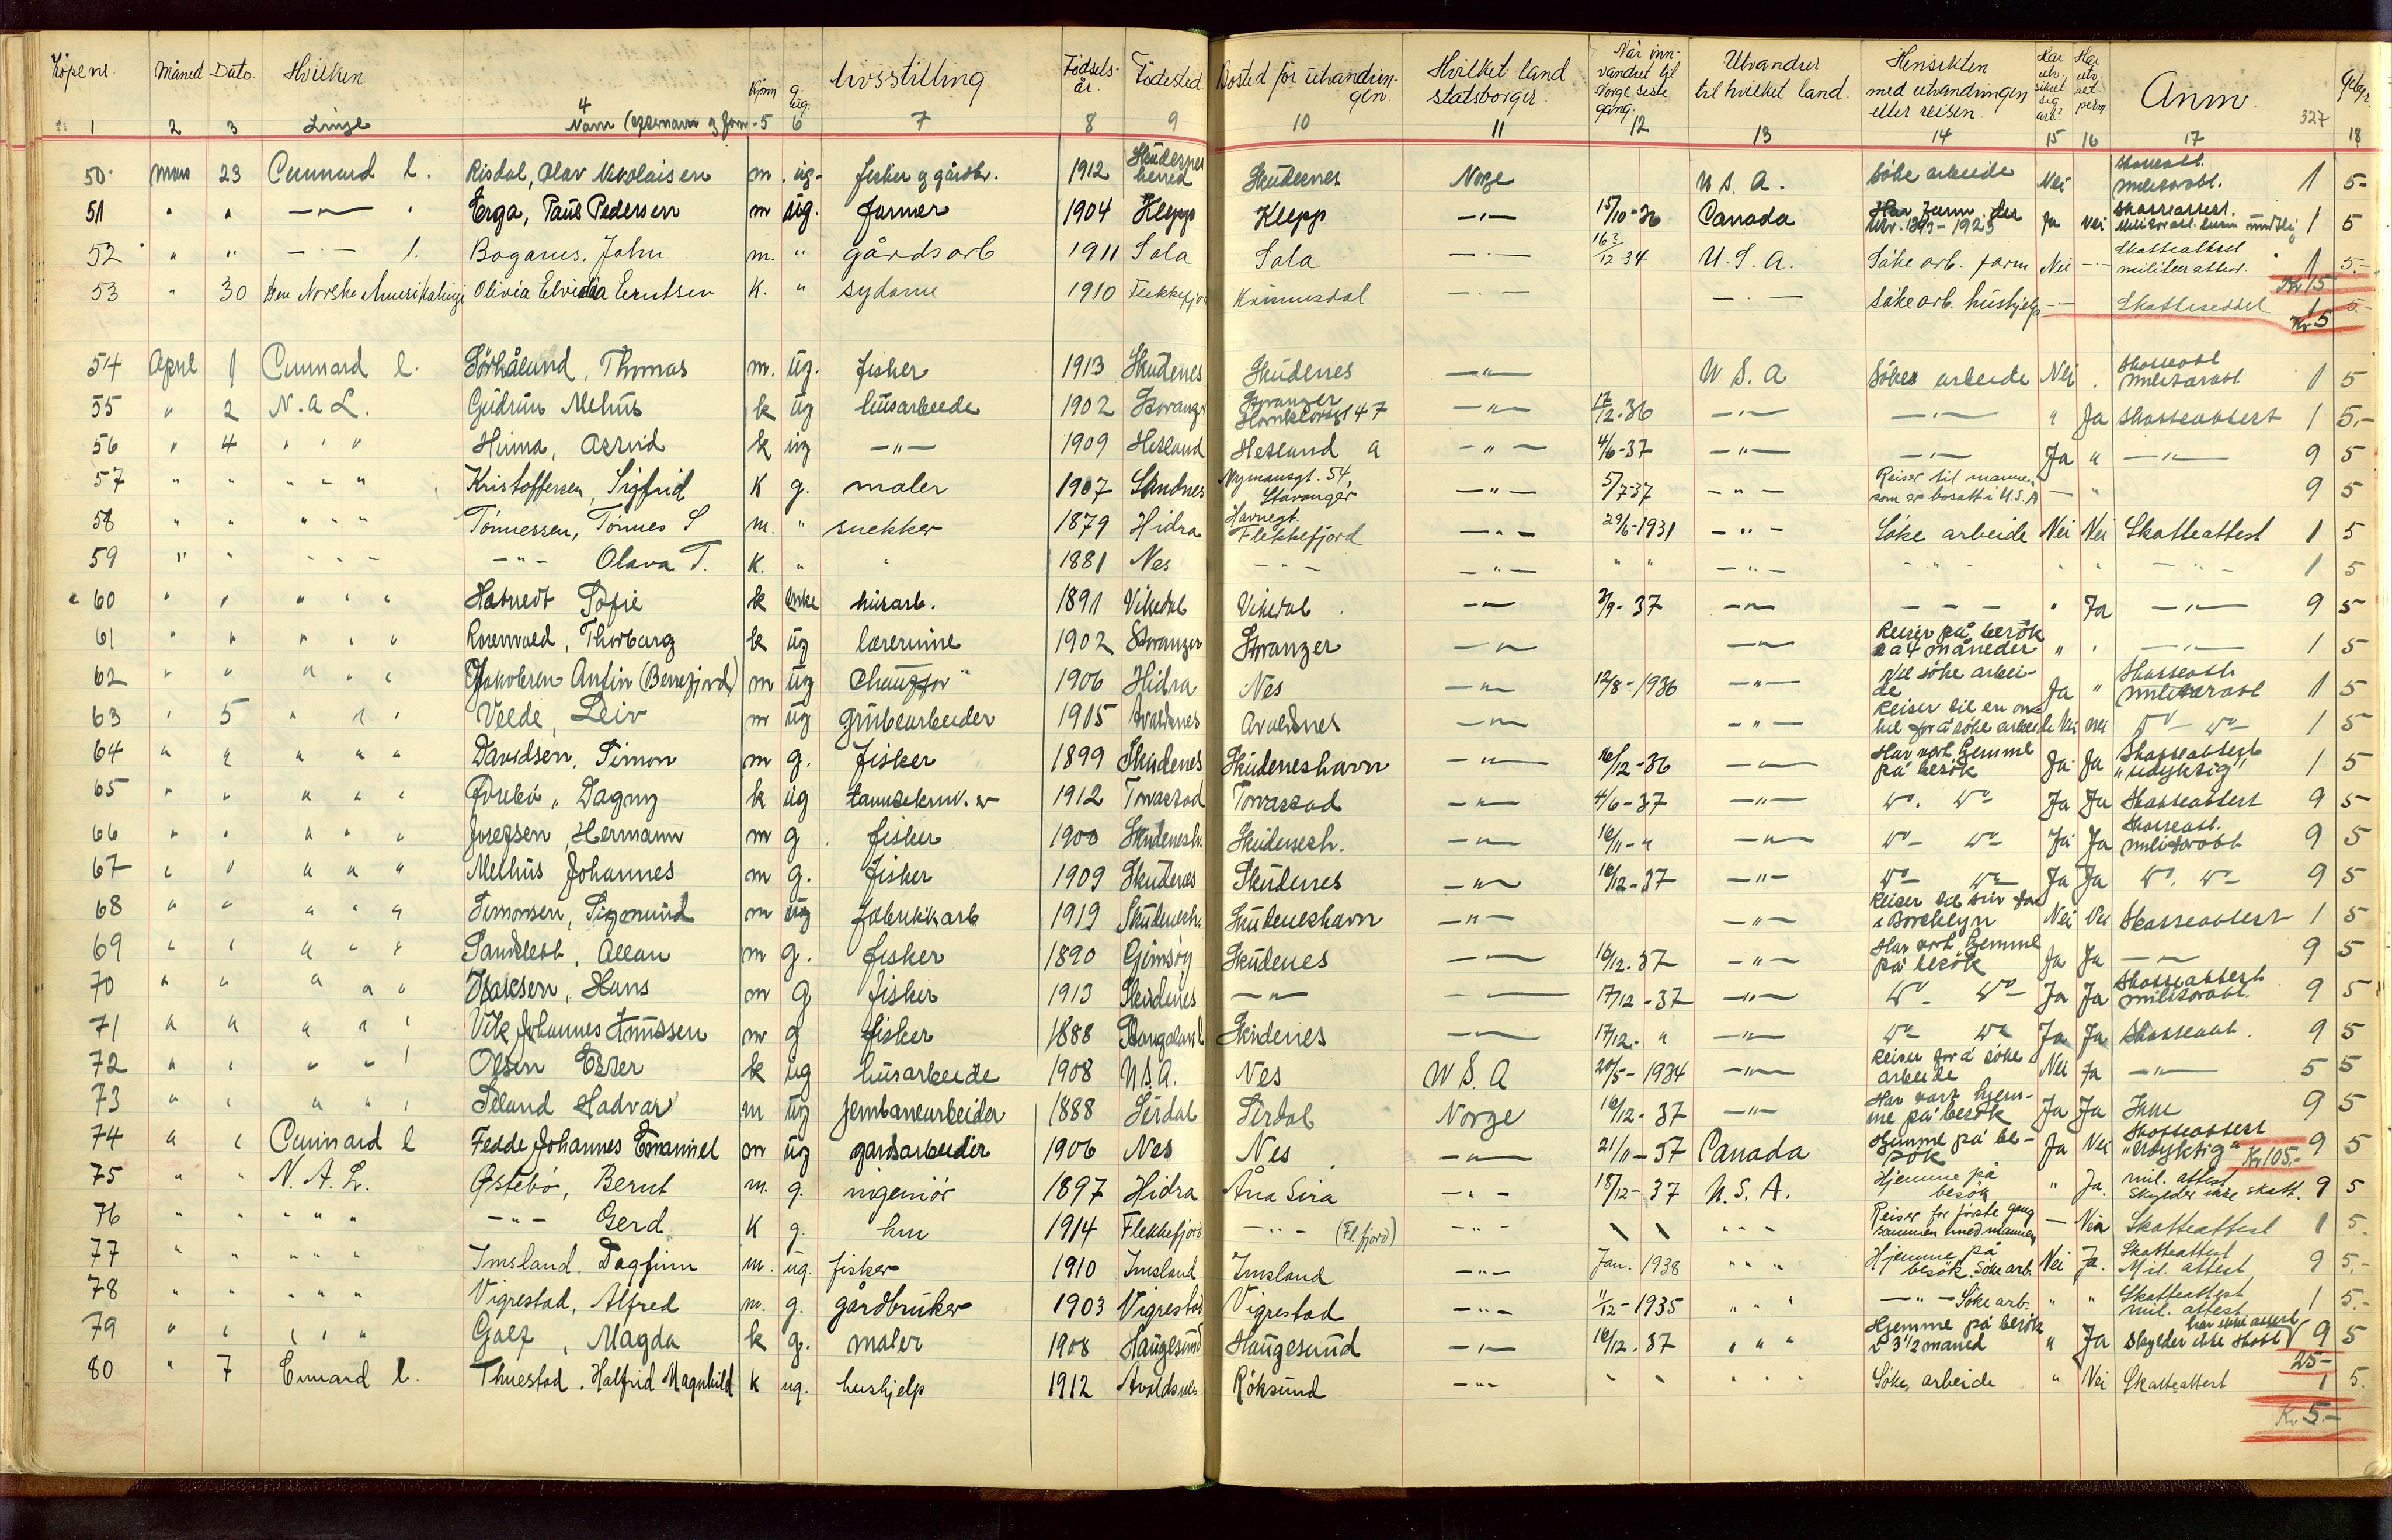 Löpe nr. Måned Dato. Hvilken Kjönn g. ug. livsstilling Födsels- år. Födested Bosted för utvandrin- gen. Hvilket land statsborger. Når inn- vandret til Norge siste gang. Utvandrer til hvilket land. Hensikten med utvandringen eller reisen. Har utv. sikret sig arb? Har utv. ret. perm. Anm. Gebyr
1 2 3 Linje 4 Navn (efternavn og forn- 5 6 7 8 9 10 11 12 13 14 15 16 17 327 18
50 mars 23 Cunnard l. Risdal, Olav Nikolaisen m. ug- fisker og gårdbr. 1912 Skudenes herred Skudenes Norge U S. A. Söke arbeide Nei Skatteatt. militæratt. 1 5-
51 " " —"— " Erga, Paul Pedersen m ug. farmer 1904 Klepp Klepp —"— 15/10-36 Canada Har farm der Utv. 1893-1923 Ja Nei Skatteattest. 1 5
52 " " — - — l. Boganes, John m. " gårdsarb 1911 Sola Sola — - — 16?/12-34 U. S. A. Söke arb. farm Nei — - Skatteattest militær attest. 1 5.-
Kr 15
53 " 30 Den Norske Amerikalinje Olivia Elvidia Erntsen K. " sydame 1910 Flekkefjor Kvinnesdal — - — — - — Söke arb. hushjelp — - — Skatteseddel 1 5.-
Kr 5
54 April 1 Cunnard l. Sörhålund, Thomas m. ug. fisker 1913 Skudenes Skudenes —"— U S. A Söke arbeide Nei . Skatteatt militæratt 1 5
55 " 2 N. a L. Gudrun Melhus k ug husarbeide 1902 Stavangr Stavanger 47 —"— 17/12-36 —"— —"— " Ja Skatteattest 1 5.-
56 " 4 " " " Hinna, Astrid k ug —"— 1909 Hetland Hetland a —"— 4/6-37 —"— —"— Ja " —"— 9 5
57 " " " " " Kristoffersen, Sigfrid K g. maler 1907 Sandnes Nymansgt. 54, Stavanger —"— 5/7-37 —"— Reiser til mannen som er bosatt i U.S.A — " 9 5
58 " " " " " Tönnessen, Tönnes S m. " snekker 1879 Hidra Havnegt. Flekkefjord —"— 29/6-1931 —"— Söke arbeide Nei Nei Skatteattest 1 5
59 " " - - - —"— Olava T. K. " " 1881 Nes —"— —"— " " —"— " " " " " —"— 1 5
60 " " " " " Havnedt Sofie k enke husarb. 1891 Vikedal Vikedal —"— 3/9-37 —"— — — — " Ja —"— 9 5-
61 " " " " " Rosenvold, Thorborg k ug lærerinne 1902 Stavanger Stavanger —"— —"— Reiser på besök 2 a 4 måneder " " —"— 1 5
62 " " " " " Jakobsen Anfin (Berrefjord) m ug Chauffør 1906 Hidra Nes —"— 12/8-1936 —"— Vil söke arbei- de Ja " Skatteatt militæratt 1 5
63 " 5 " " " Velde, Leiv m ug grubearbeider 1905 Avaldsnes Avaldsnes —"— —"— Reiser til en on- kel for å söke arbeide Nei nei Do — Do — 1 5
64 " " " " " Davidsen, Simon m g. fisker 1899 Skudenes Skudeneshavn —"— 16/12-36 —"— Har vært hjemme på besök Ja Ja Skatteattest, "udyktig" 1 5
65 " " " " " Dagny k ug 1912 Torvastad Torvastad —"— 4/6-37 —"— Do. Do Ja Ja Skatteattest 9 5-
66 " " " " " Josefsen, Hermann m g. fisker 1900 Skudenesh. Skudenesh. —"— 16/11-" —"— Do — Do — Ja Ja Skatteatt. militæratt 9 5
67 " " " " " Melhus Johannes m g. fisker 1909 Skudenes Skudenes —"— 16/12-37 —"— Do — Do — Ja Ja Do. Do — 9 5
68 " " " " " Simonsen, Sigmund m ug fabrikkarb 1919 Skudenesh. Skudeneshavn —"— —"— Reiser til sin far i Brocklyn Nei Nei Skatteattest 1 5
69 " " " " " Sandtlett, Allan m g. fisker 1890 Gimsöy Skudenes —"— 16/12-37 —"— Har vært hjemme på besök Ja Ja —"— 9 5
70 " " " " " Isaksen, Hans m g fisker 1913 Skudenes —"— —— 17/12-37 —"— Do — Do — Ja Ja Skatteattest militæratt. 9 5
71 " " " " " Vik Johannes Knutsen m g fisker 1888 Stangaland Skudenes —"— 17/12-" —"— Do — Do Ja Ja Skatteatt. 9 5
72 " " " " " Olsen Ester k ug husarbeide 1908 U.S.A. Nes U S. A 20/5-1934 —"— Reiser for å söke arbeide Nei Ja —"— 5 5
73 " " " " " Seland Hadvar m ug jernbanearbeider 1888 Sirdal Sirdal Norge 16/12-37 —"— Har vært hjem- me på besök Ja Ja Ikke 9 5
74 " " Cunnard l Fedde Johannes Emanuel m ug gårdsarbeider 1906 Nes Nes —"— 21/11-37 Canada Hjemme på be- sök Ja Nei Skatteattest "Udyktig" 9 5
Kr 105.-
75 " " N. A. L. Östebö, Bernt m. g. ingeniör 1897 Hidra Åna Sira —"— 18/12-37 U. S. A. Hjemme på besök " Ja. mil. attest skylder ikke skatt. 9 5
76 " " " " " —"— Gerd K g. hm 1914 Flekkefjord —"— (Fl. fjord) —"— \ \ " " " Reiser for förste gang sammen med mannen — Nei Skatteattest 1 5.
77 " " " " " Imsland, Dagfinn m. ug. fisker 1910 Imsland Imsland —"— Jan. 1938 " " " Hjemme på besök. Söke arb. Nei Ja. Skatteattest Mil. attest 9 5.-
78 " " " " " Vigrestad, Alfred m. g. gårdbruker 1903 Vigrestad Vigrestad —"— 11/12-1935 " " " —"— Söke arb. " " Skatteattest mil. attest 1 5.-
79 " " " " " Galf, Magda k g. maler 1908 Haugesund Haugesund —"— 16/12-37 " " " Hjemme på besök i 3 1/2 måned " Ja har ikke attest Skylder ikke skatt 9 5
25-
80 " 7 Cunard l. Thuestad, Halfrid Magnhild K ug. hushjelp 1912 Avaldsnes Röksund —"— " " " " " Söke arbeide " Nei Skatteattest 1 5.
Kr 5.-